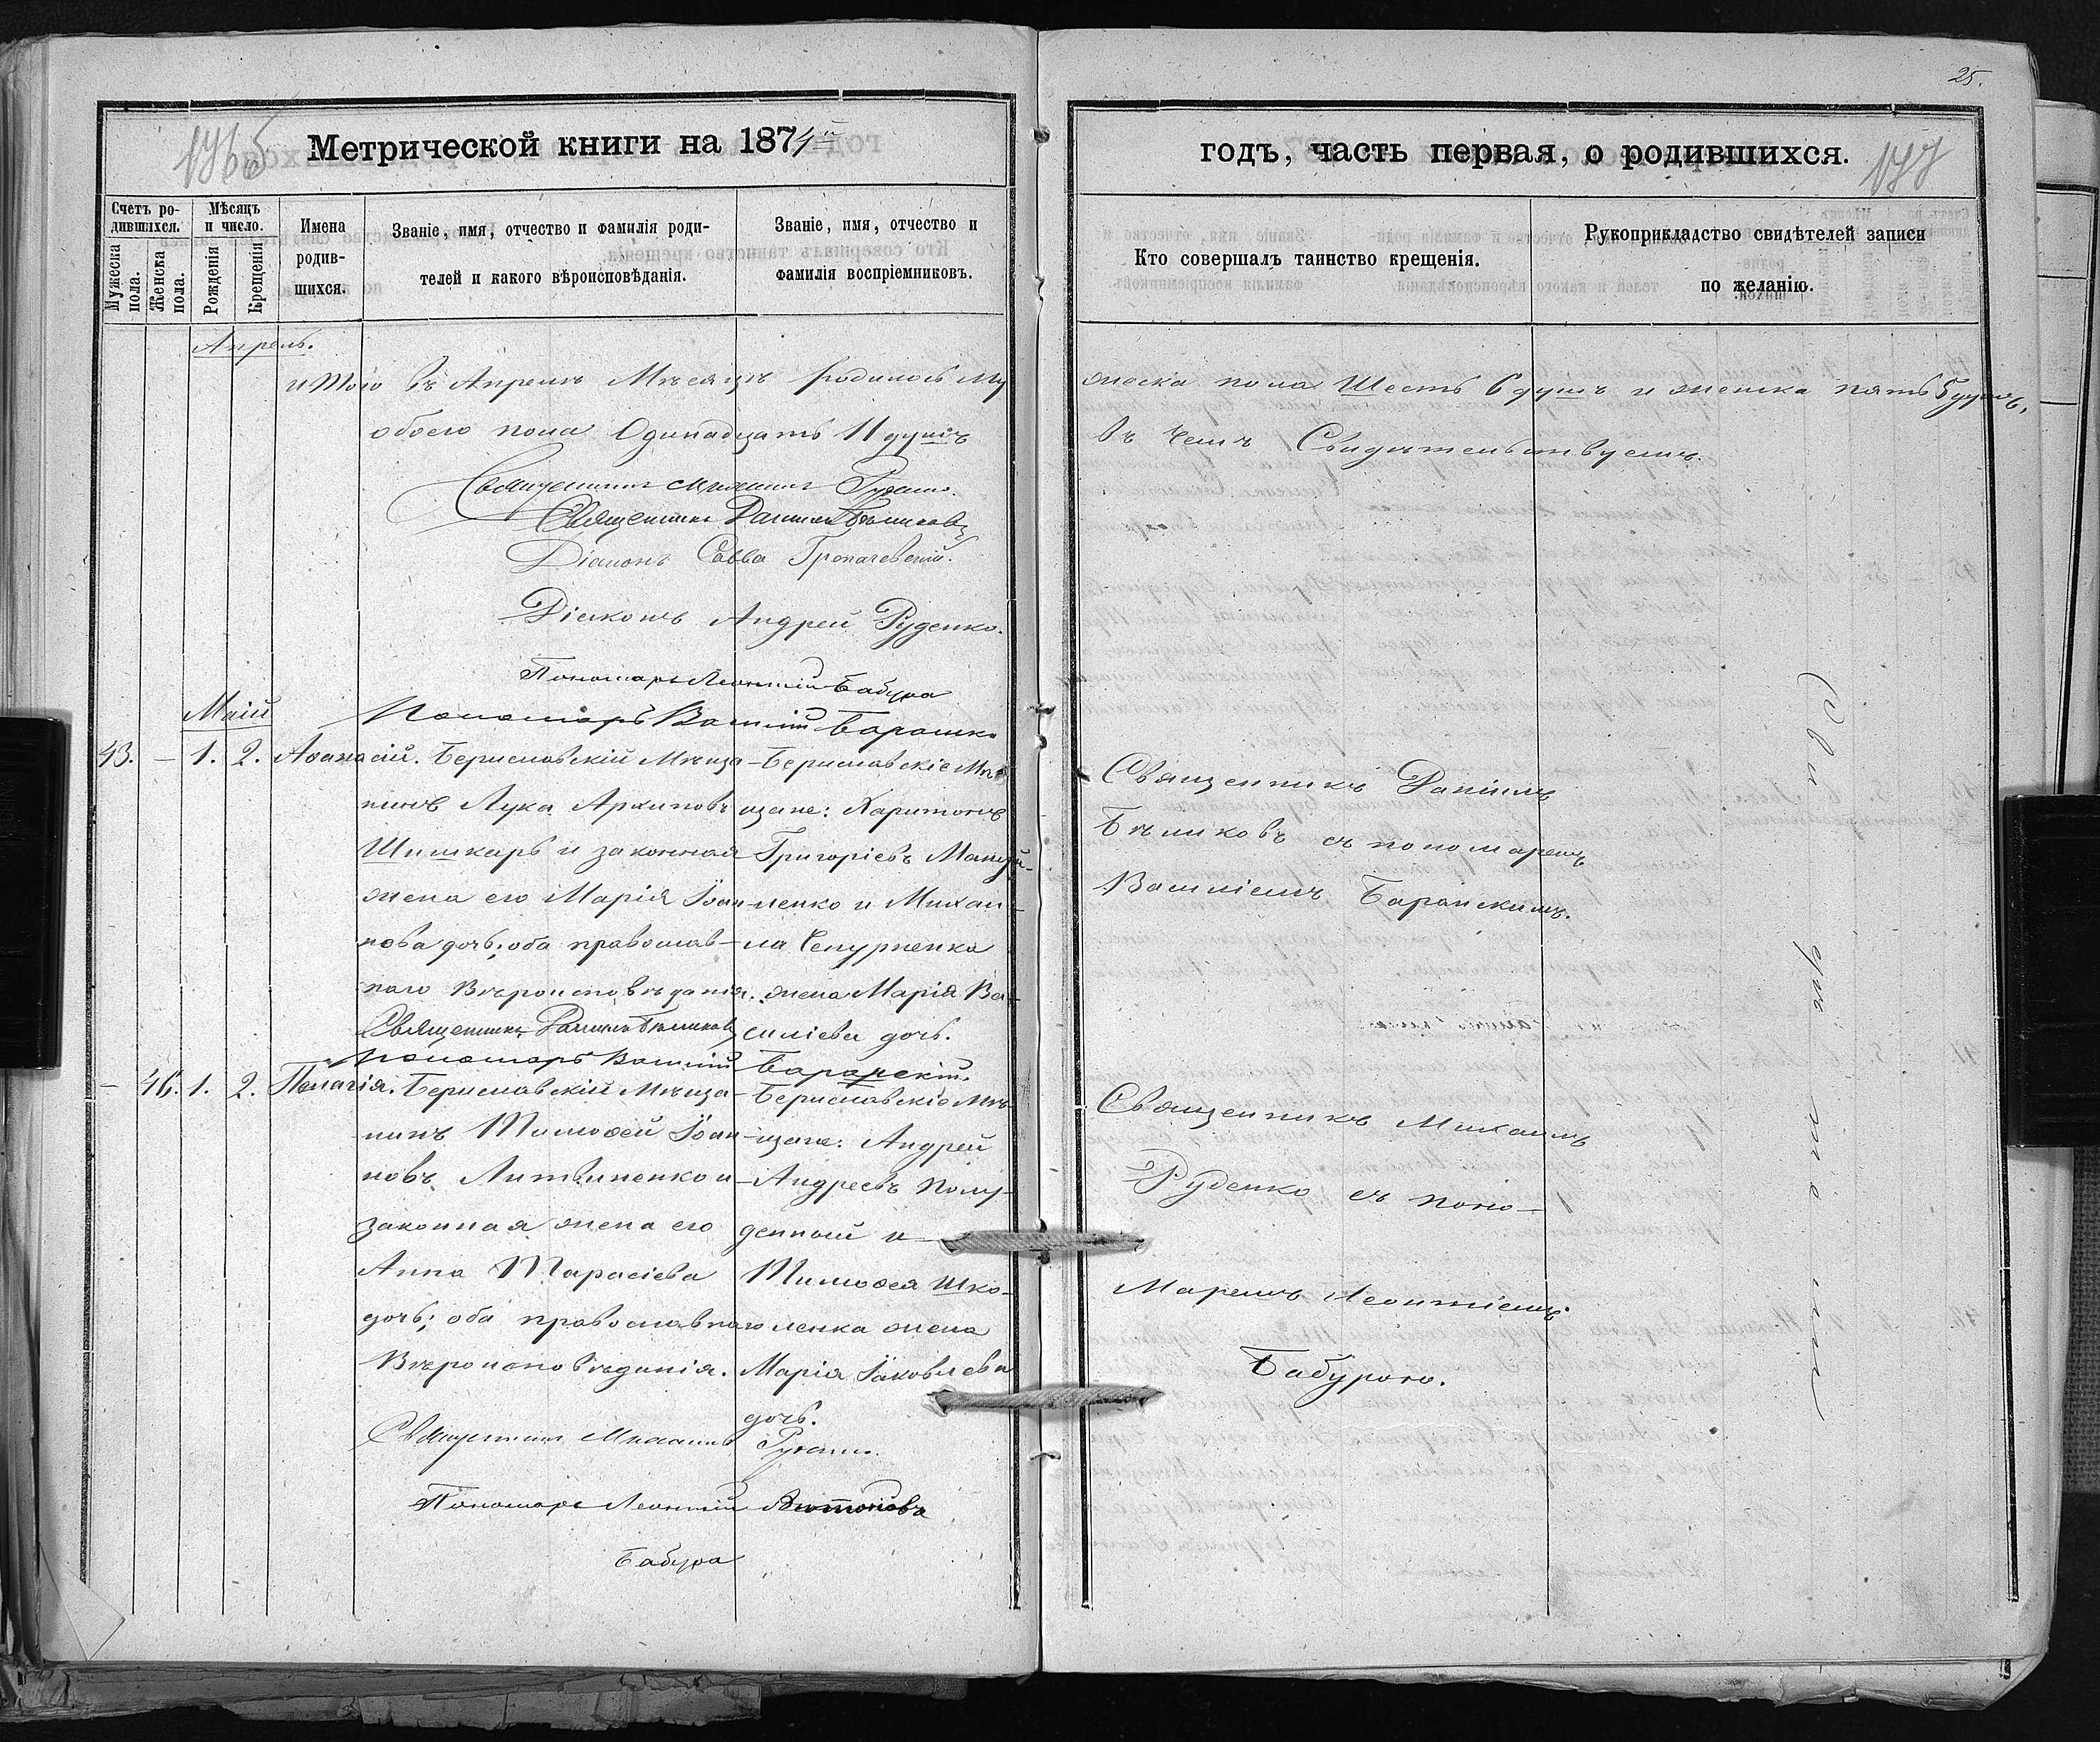 25.
Метрической книги на 1874й
годъ, часть первая, о родившихся.
177
Счетъ ро-
дившихся.
Мужеска пола.
Женска пола.
Мѣсяцъ
и число.
Рожденія
Крещенія
Имена
родив-
шихся.
Званіе, имя, отчество и фамилія роди-
телей и какого вѣроисповѣданія.
Званіе, имя, отчество и
фамилія воспріемниковъ.
Кто совершалъ таинство крещенія.
Рукоприкладство свидѣтелей записи
по желанію.
Апрель.
итого въ Апрелѣ Мѣсяцѣ родилось Му
жеска пола Шесть 6 душъ и женска пять 5 душъ,
обоего пола Одинадцать 11 душъ
въ чемъ Свидѣтельствуемъ.
Священникъ Михаилъ Руденко.
Священникъ Даніилъ Бѣликовъ
Діаконъ Савва
Діаконъ Андрей Руденко.
Пономарь Леонтій Бабура
Пономарь Василій
Маій
43. — 1. 2. Аѳанасій.
Бериславскій Мѣща-
нинъ Лука Архиповъ
Шишкарь и законная
жена его Марія Іоан-
нова дочь; оба православ-
наго Вѣроисповѣданія.
Священникъ Даніилъ Бѣликовъ
Пономарь Василій Баранскій
Бериславскіе Мѣ-
щане: Харитонъ
Григоріевъ Мануй-
ленко и Михаи-
ла Чепурненка
жена Марія Ва-
силіева дочь.
Священникъ Даніилъ
Бѣликовъ съ пономаремъ
Василіемъ Баранскимъ.
— 46. 1. 2. Пелагія.
Бериславскій Мѣща-
нинъ Тимоѳей Іоан-
новъ Литвиненко и
законная жена его
Анна Тарасіева
дочь; оба православнаго
Вѣроисповѣданія.
Бериславскіе Мѣ-
щане: Андрей
Андреевъ Полу-
денный и
Тимоѳея Шко-
ленка жена
Марія Іаковлева
дочь.
Священникъ Михаилъ Руденко.
Пономарь Леонтій
Бабура
Священникъ Михаилъ
Руденко съ поно-
Маремъ Леонтіемъ
Бабурою.